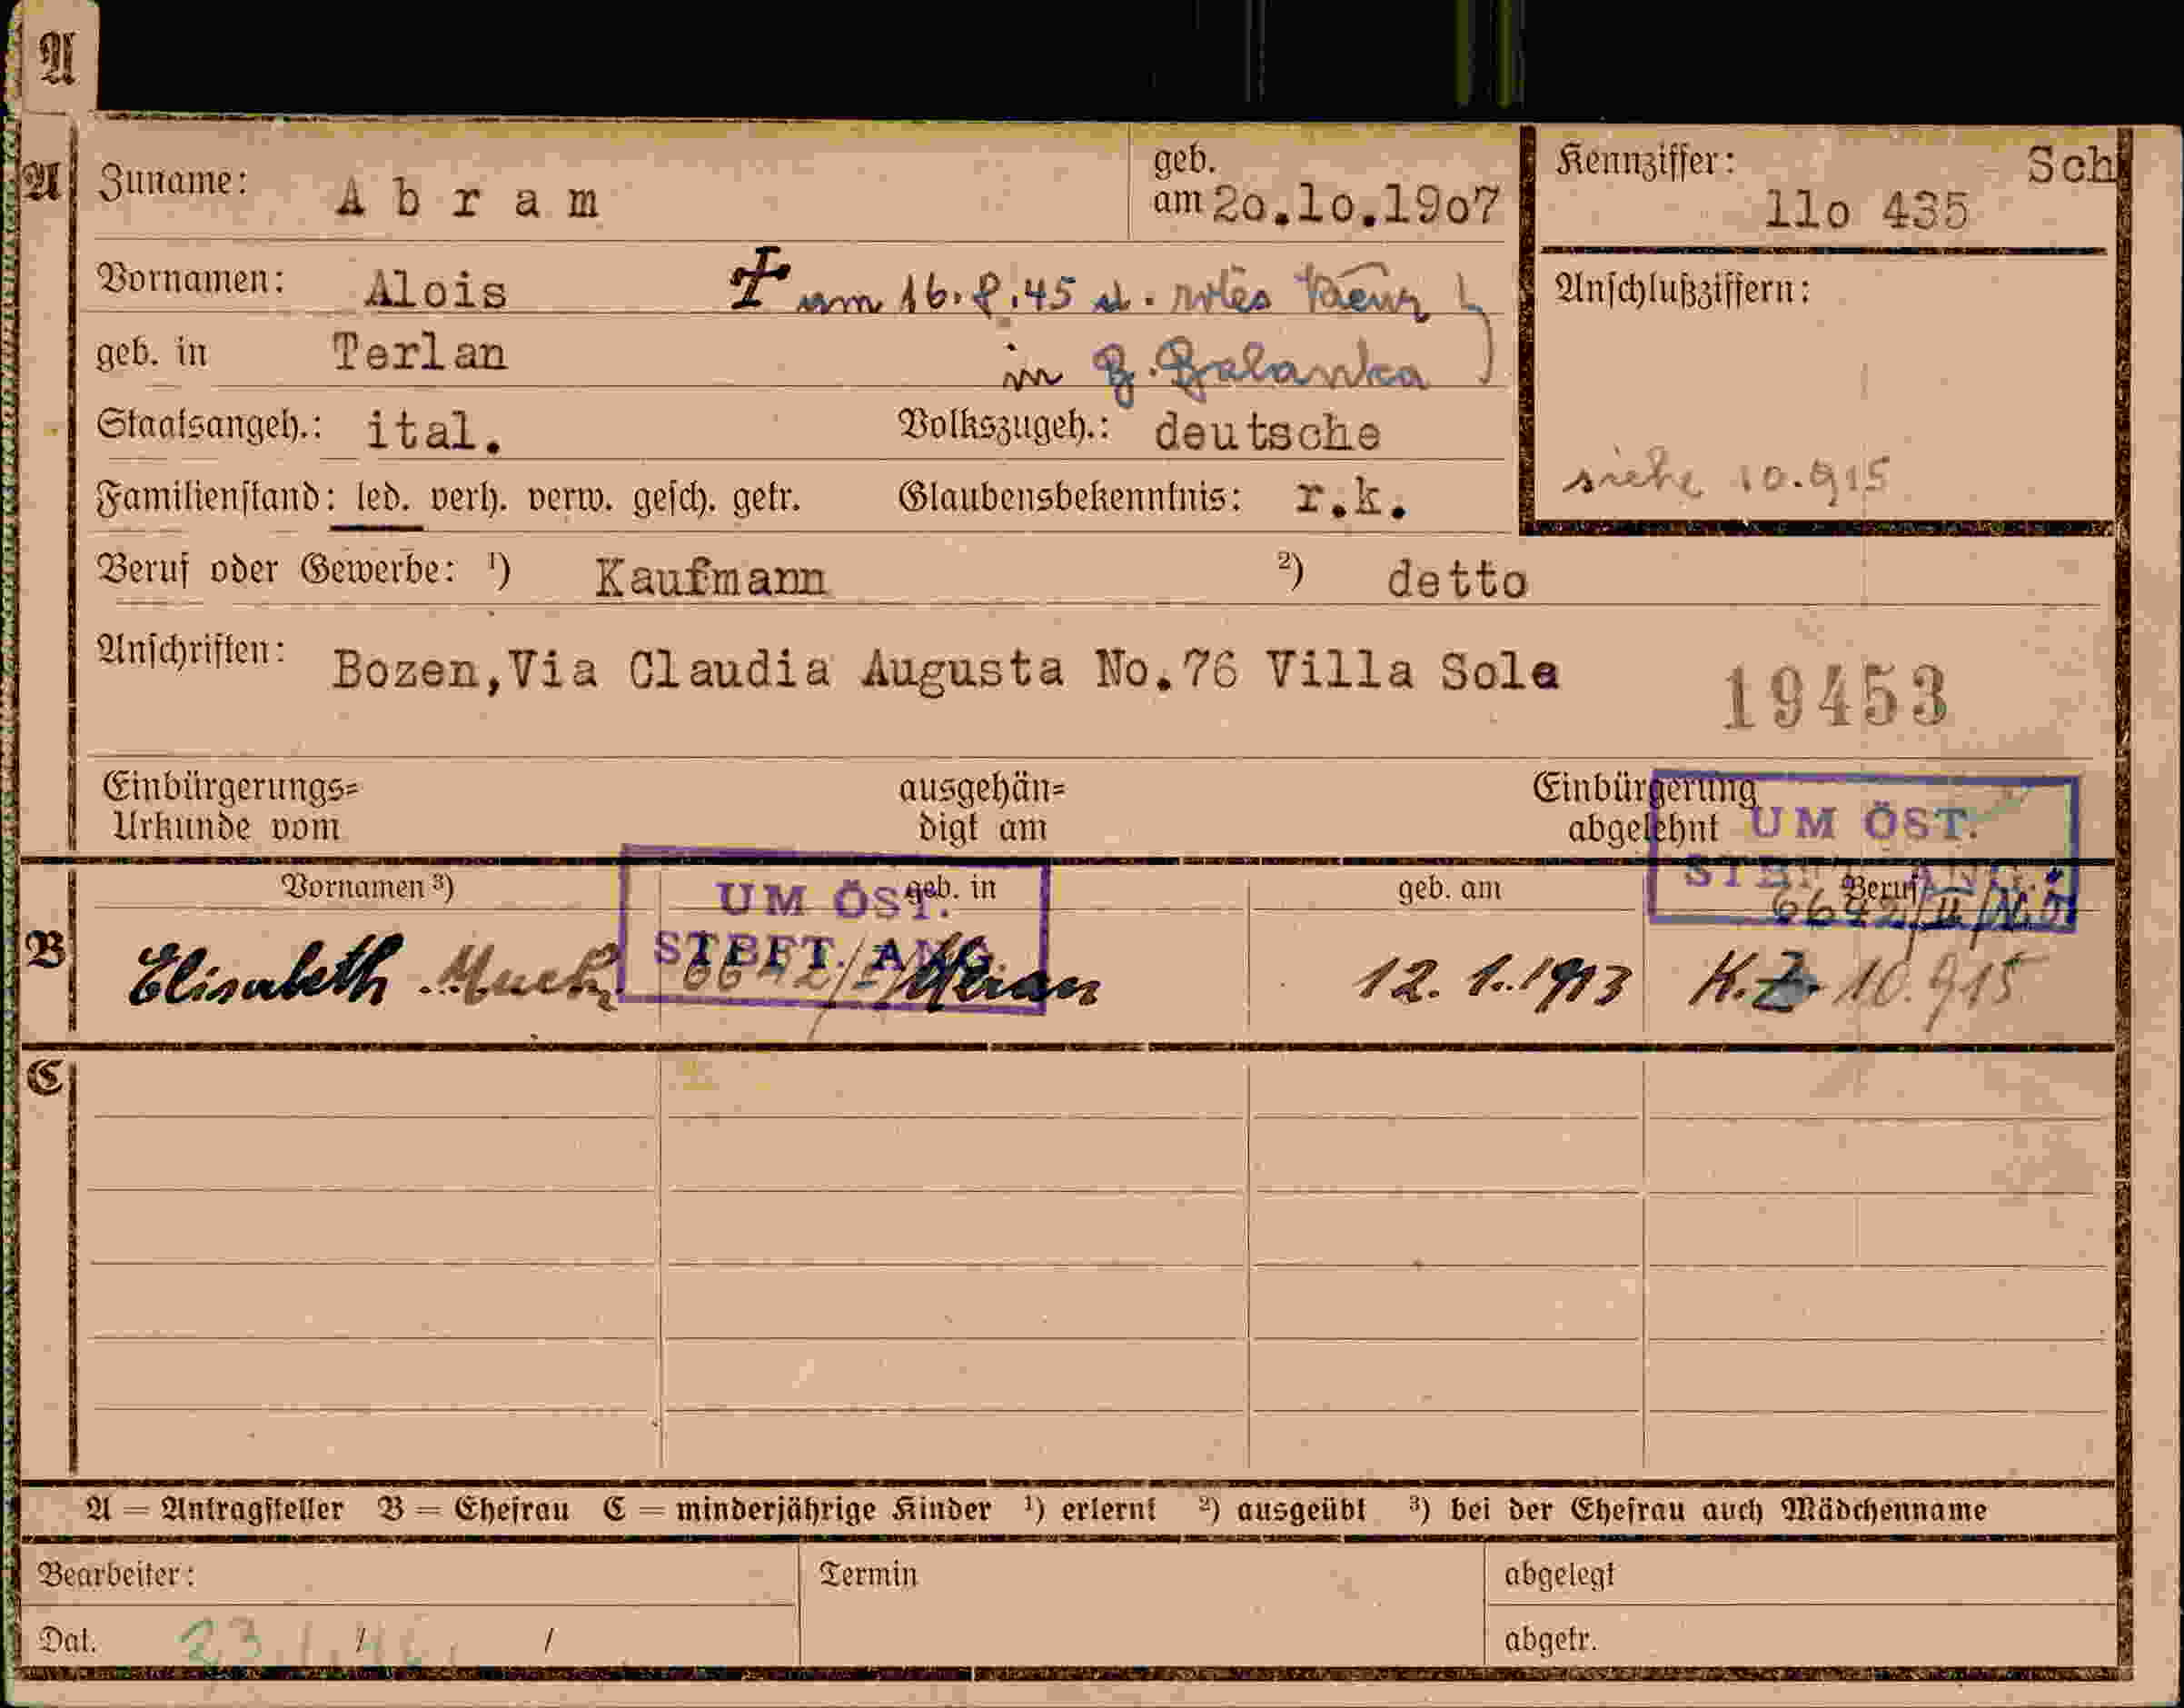 A
A Zuname: Abram geb. am 2o.lo.19o7 Kennziffer: llo 435 Sch
Vornamen: Alois † am 16.8.45 d. rotes Kreuz Anschlußziffern:
geb. in Terlan in B. Balanka
Staatsangeh.: ital. Volkszugeh.: deutsche
siehe 10.915
Familienstand: led. verh. verw. gesch. getr. Glaubensbekenntnis: r.k.
Beruf oder Gewerbe: ¹) Kaufmann ²) detto
Anschriften: Bozen,Via Claudia Augusta No.76 Villa Sole
19453
Einbürgerungs= ausgehän= Einbürgerung
Urkunde vom digt am abgelehnt
UM ÖST.
Vornamen ³) geb. in geb. am Beruf
UM ÖST.
STBFT. ANG.
B Elisabeth Meran 12.1.1913 K.Z. 10.915
C
A = Antragsteller B = Ehefrau C = minderjährige Kinder ¹) erlernt ²) ausgeübt ³) bei der Ehefrau auch Mädchenname
Bearbeiter: Termin abgelegt
Dat. / / abgetr.